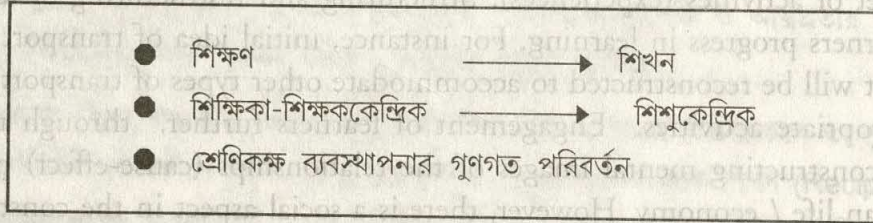 ● শিক্ষণ → শিখন
● শিক্ষিকা-শিক্ষককেন্দ্রিক → শিশুকেন্দ্রিক
● শ্রেণিকক্ষ ব্যবস্থাপনার গুণগত পরিবর্তন